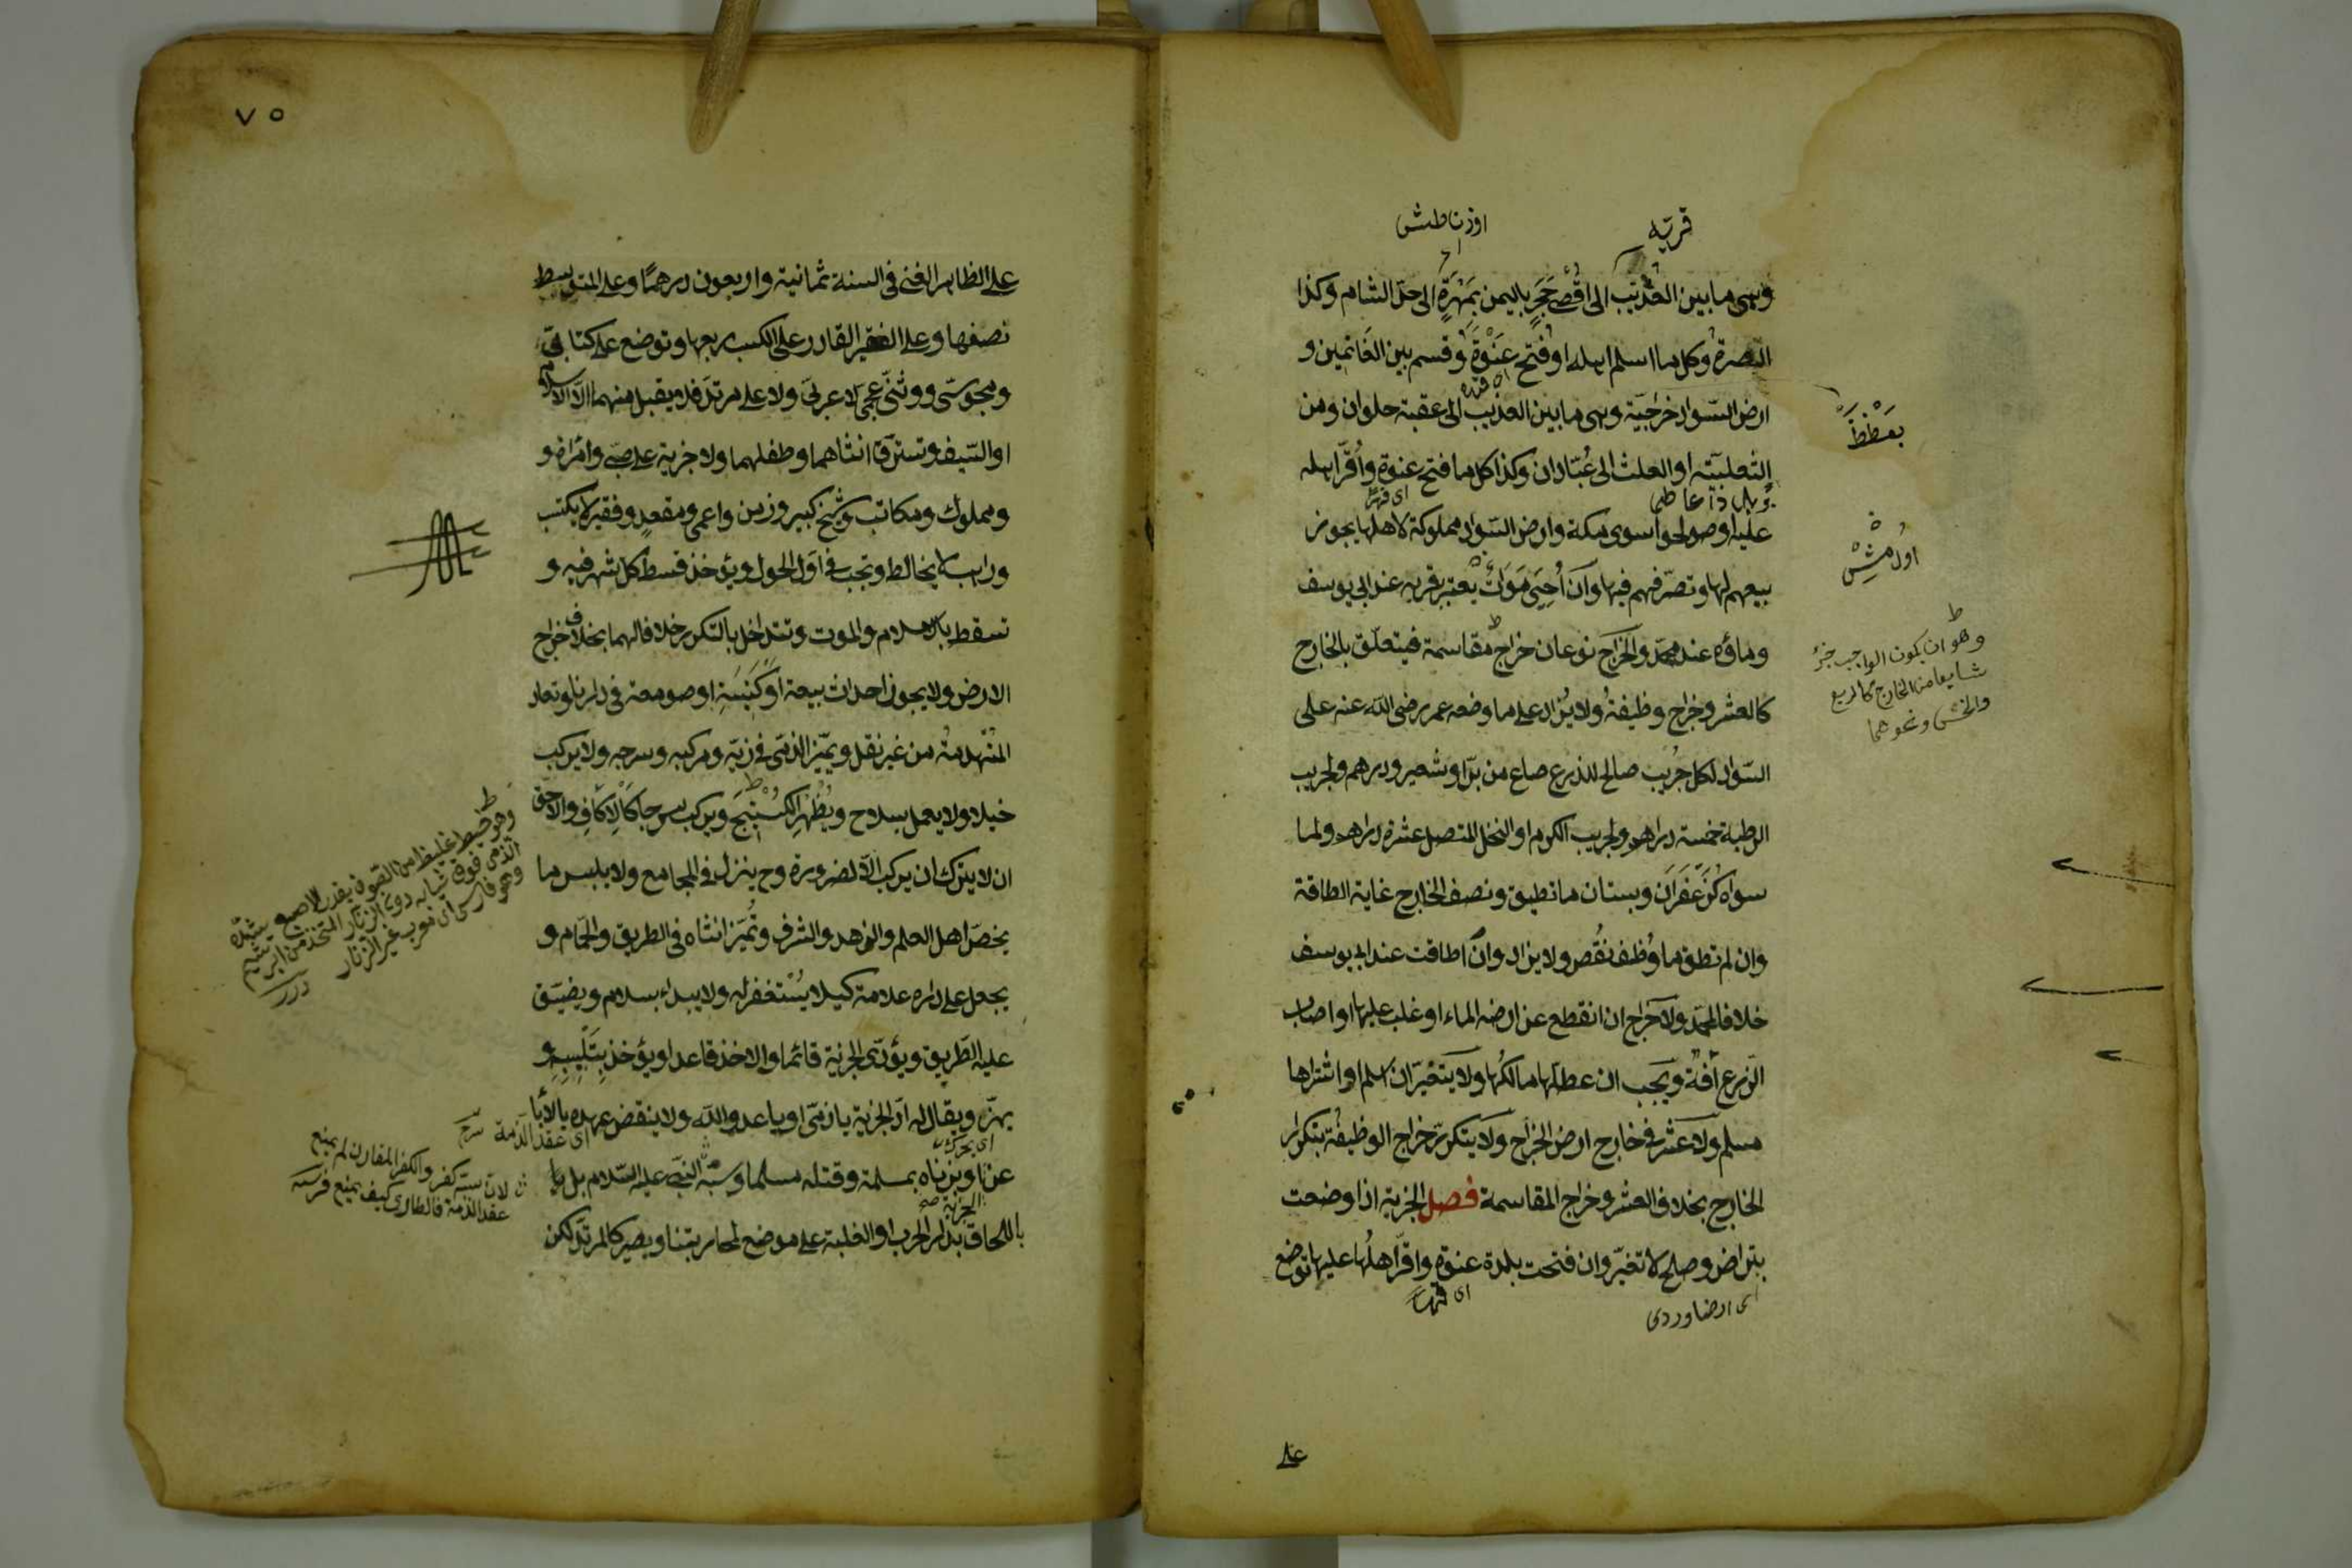 قريه
اوزناطش
وهى ما بين العذيب الى اقصى حجر باليمن بمهرة الى حد الشام وكذا
البصرة وكل ما اسلم اهله او فتح عنوة وقسم بين الغانمين و
ارض السواد خراجية وهى ما بين العذيب الى عقبة حلوان ومن
الثعلبية او العلث الى عبادان وكذا كل ما فتح عنوة واقر اهله
اى قهرا
عليه او صولحوا سوى مكة وارض السواد مملوكة لاهلها يجوز
بيعهم لها وتصرفهم فيها وان احيى موات يعتبر قربه عند ابى يوسف
وماؤه عند محمد والخراج نوعان خراج مقاسمة فيتعلق بالخارج
كالعشر وخراج وظيفة ولا يزاد على ما وضعه عمر رضى الله عنه على
السواد لكل جريب صالح للذرع صاع من بر او شعير ودرهم ولجريب
الرطبة خمسة دراهم ولجريب الكرم او النخل المتصل عشرة دراهم ولما
سواه كزعفران وبستان ما تطيق ونصف الخارج غاية الطاقة
وان لم تطق ما وظف نقص ولا يزاد وان اطاقت عند ابى يوسف
خلافا لمحمد ولا خراج ان انقطع عن ارضه الماء او غلب عليها او اصاب
الزرع آفة ويجب ان عطلها مالكها ولا يتغير ان اسلم او اشتراها
مسلم ولا عشر فى خارج ارض الخراج ولا يتكرر خراج الوظيفة بتكرار
الخارج بخلاف العشر وخراج المقاسمة فصل الجزية اذا وضعت
بتراض وصلح لا تغير وان فتحت بلدة عنوة واقر اهلها عليها توضع
اى قهرا
وهو ان يكون الواجب جزء
شايعا من الخارج كالربع
والخمس ونحوهما
على
٧٥
على الظاهر الغنى فى السنة ثمانية واربعون درهما وعلى المتوسط
نصفها وعلى الفقير القادر على الكسب ربعها وتوضع على كتابى
ومجوسى ووثنى عجمى لا عربى ولا على مرتد فلا يقبل منهما الا الاسلام
او السيف وتسترق انثاهما وطفلهما ولا جزية على صبى وامراة و
ومملوك ومكاتب وشيخ كبير وزمن واعمى ومقعد وفقير لا يكتسب
وراهب لا يخالط وتجب فى اول الحول ويؤخذ قسط كل شهر فيه و
تسقط بالاسلام والموت وتتداخل بالتكرر خلافا لهما بخلاف خراج
الارض ولا يجوز احداث بيعة او كنيسة او صومعة فى دارنا وتعاد
المنهدمة من غير نقل ويميز الذمى فى زيه ومركبه وسرجه ولا يركب
خيلا ولا يعمل بسلاح ويظهر الكستيج ويركب سرجا كالاكاف والاحق
ان لا يترك ان يركب الا لضرورة وح ينزل فى المجامع ولا يلبس ما
يخص اهل العلم والزهد والشرف وتميز انثاه فى الطريق والحمام و
يجعل على داره علامة كيلا يستغفر له ولا يبدأ بسلام ويضيق
عليه الطريق ويؤدى الجزية قائما والاخذ قاعدا ويؤخذ بتلبيبه و
يهز ويقال له اد الجزية يا ذمى او يا عدو الله ولا ينقض عهده بالأبا
اى عقد الذمة
عن او بزناه بمسلمة وقتله مسلما وسبه النبى عليه السلام بل
الجزية صح
باللحاق بدار الحرب او الغلبة على موضع لمحاربتنا ويصير كالمرتد لكن
وهو خيط غليظ من الصوف بقدر الاصبع يشده
الذمى فوق ثيابه دون الزنار المتخذ من ابريشم
وهو فارسى معرب غير الزنار
درر
لان سبه كفر والكفر المقارن لم يمنع
عقد الذمة فالطارى كيف يمنع